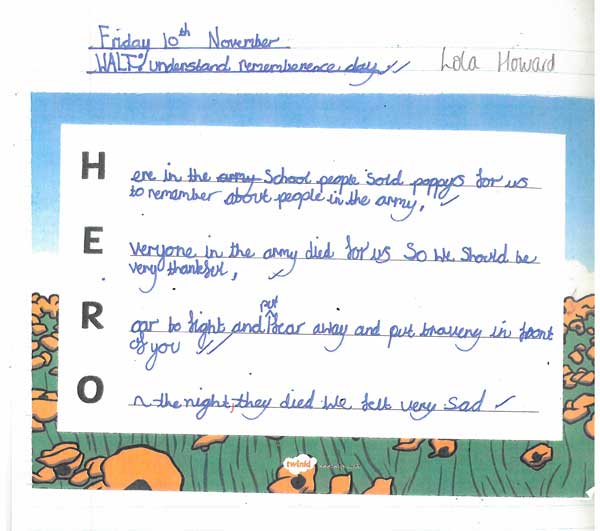 Friday 10th November
WALT: understand rememberence day
Lola Howard
H ere in the army School people Sold poppys for us
to remember about people in the army.
E veryone in the army died for us So We Should be
very thankful.
put
R oar to fight and fear away and put bravery in front
of you
O n the night, they died We felt very sad
twinkl